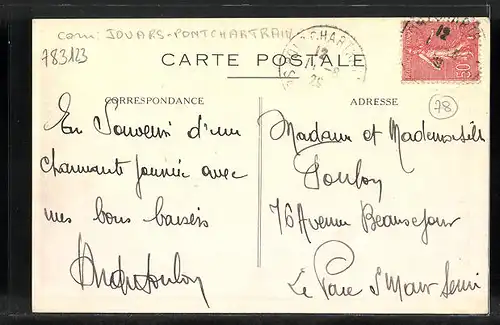 com: JOUARS-PONTCHARTRAIN
783123
CARTE POSTALE
CORRESPONDANCE
ADRESSE
78
50
En Souvenir d'une
charmante journée avec
mes bons baisers
Madame et Mademoiselle
76 Avenue Beausejour
Le Parc St Maur Seine